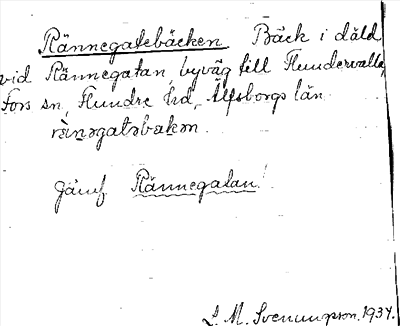 Rännegatebäcken Bäck i däld
vid Rännegatan, byväg till Flundervalla,
Fors sn, Flundre hd, Älfsborgs län
rän̲əgatəbäkən.
Jämf. Rännegatan!
L. M. Svenungson. 1934.